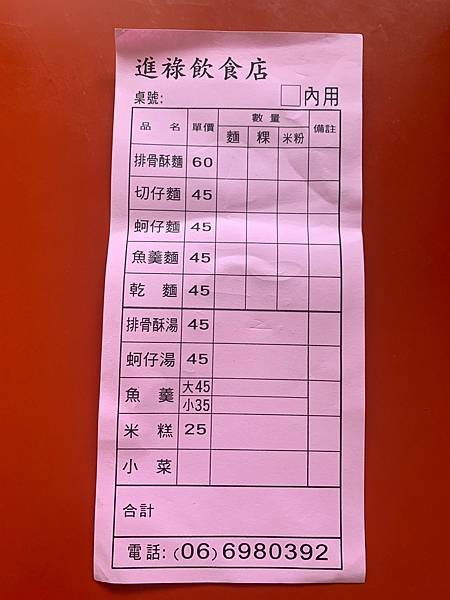 進祿飲食店
桌號: 內用
品名 單價 數量 備註
麵 粿 米粉
排骨酥麵 60
切仔麵 45
蚵仔麵 45
魚羹麵 45
乾麵 45
排骨酥湯 45
蚵仔湯 45
魚羹 大45
小35
米糕 25
小菜
合計
電話:(06)6980392